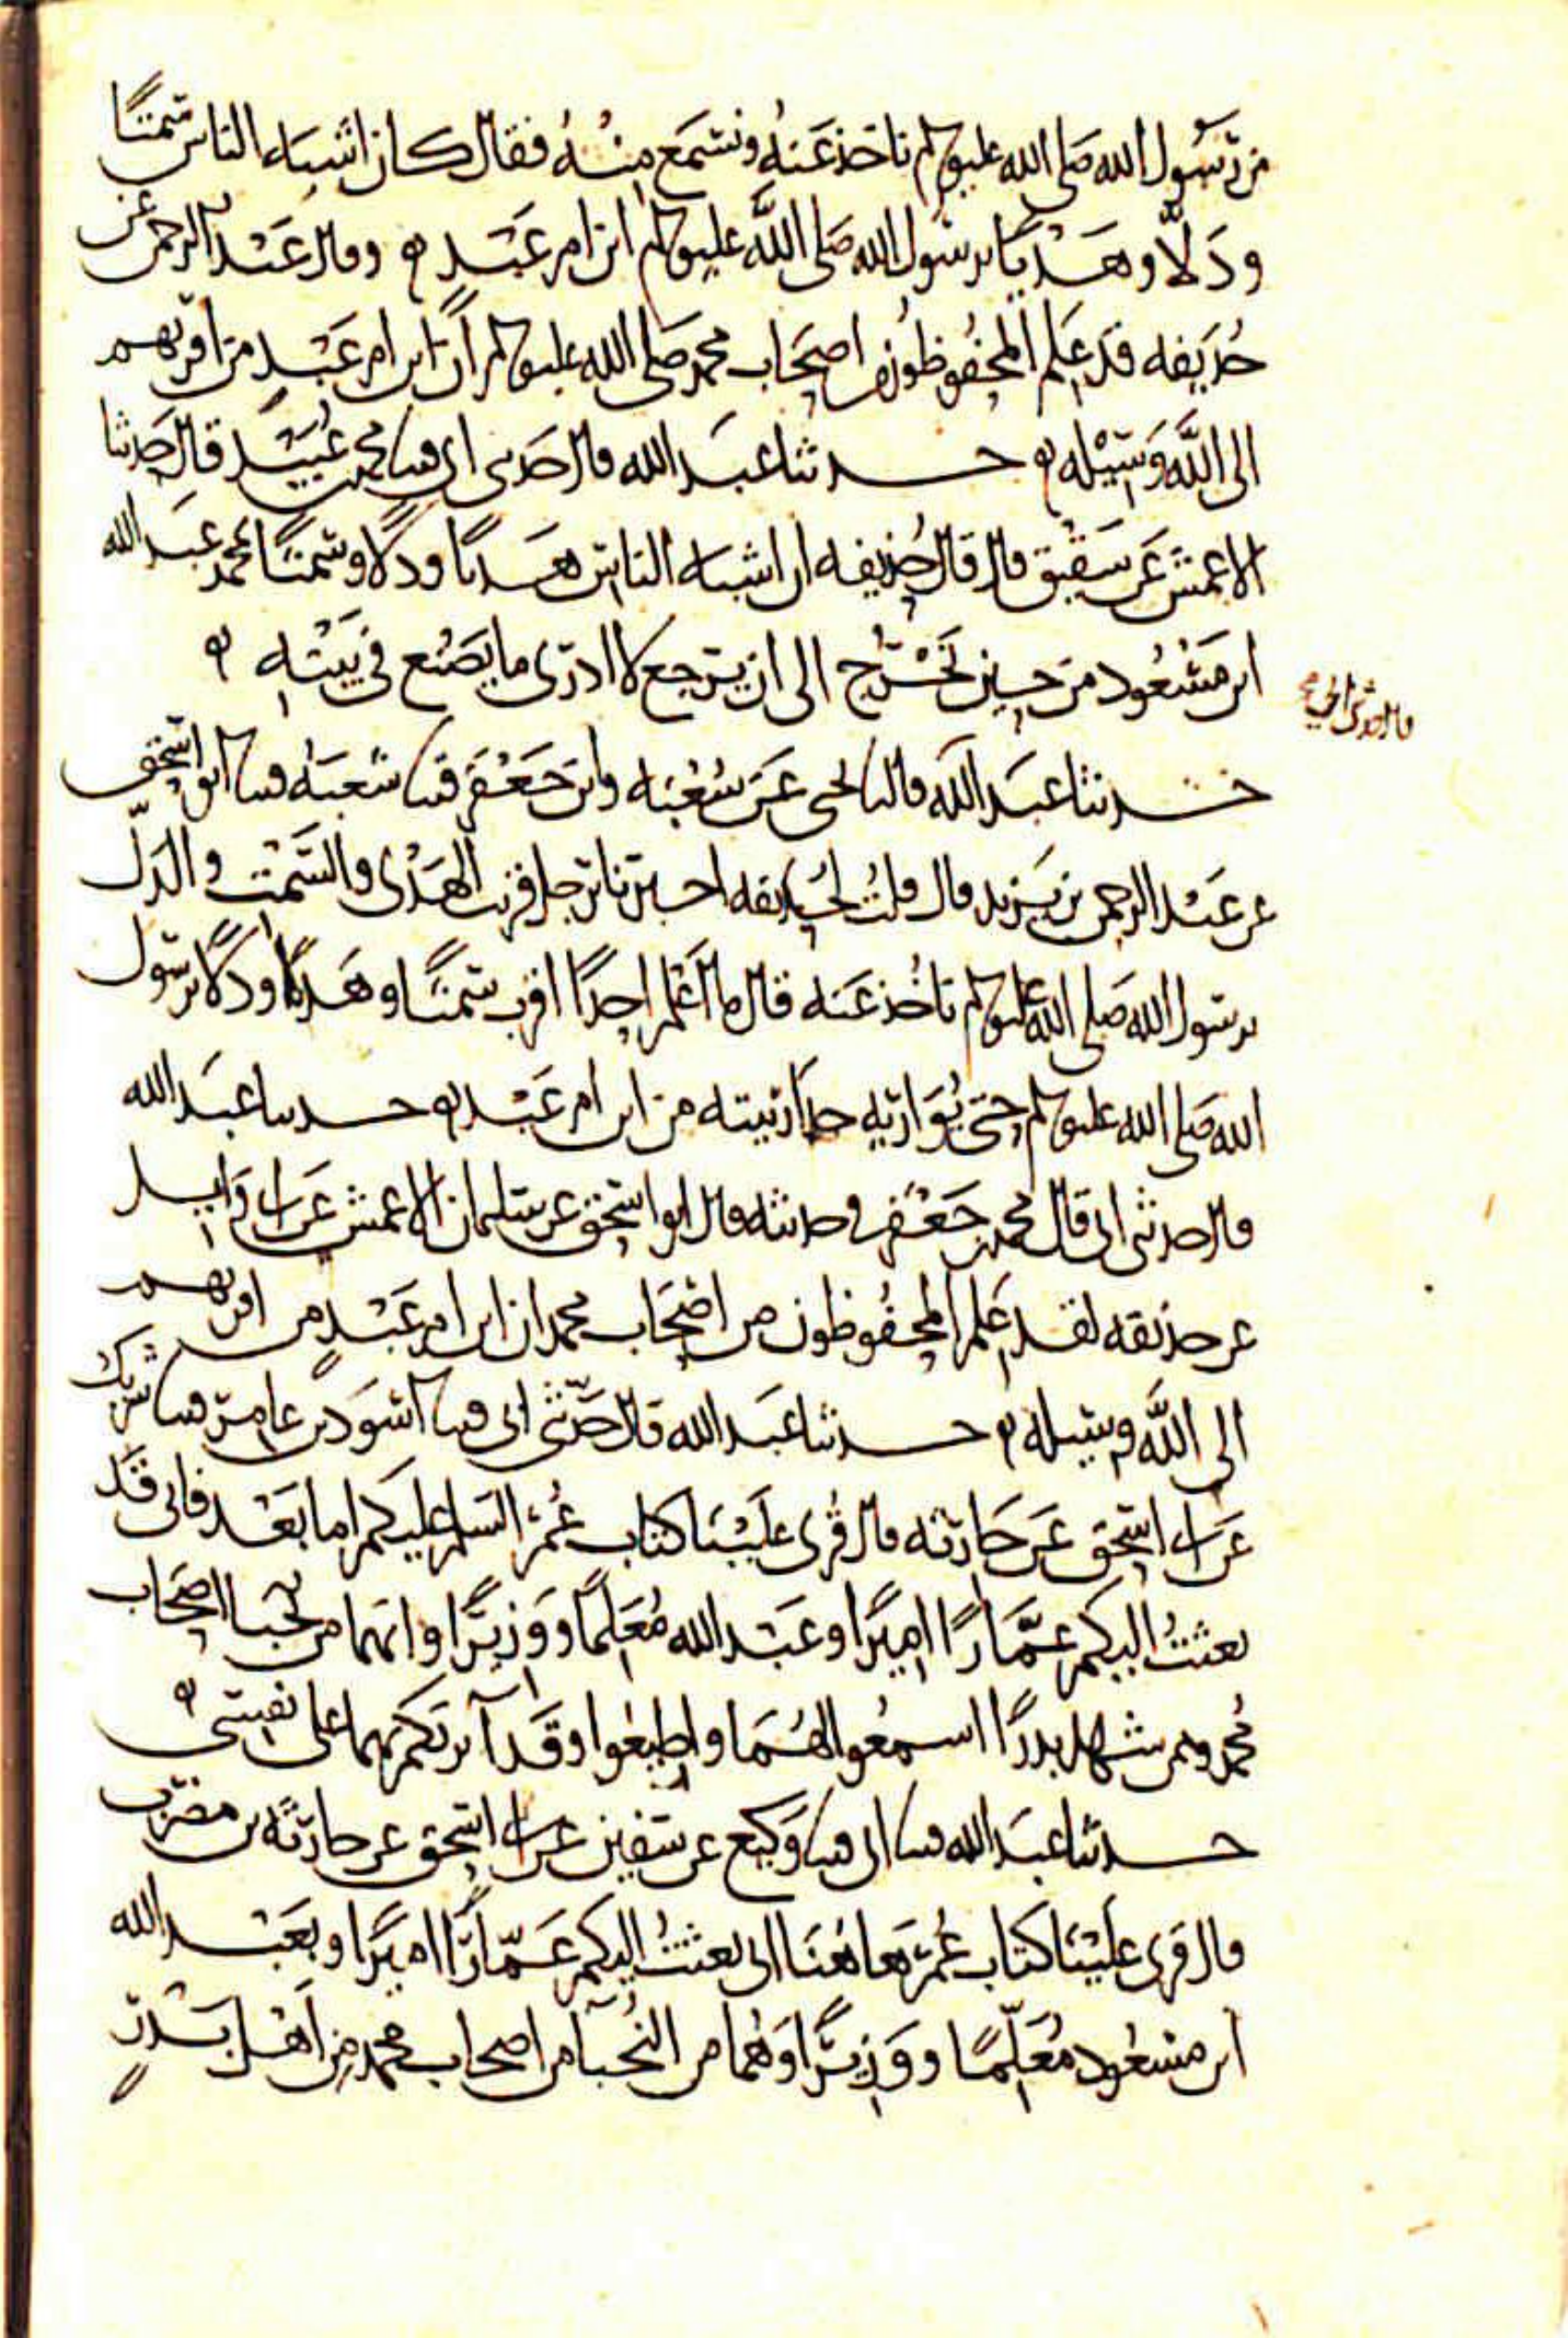 من رسول الله صلى الله عليه وسلم ناخذ عنه ونسمع منه فقال كان اشبه الناس سمتا
ودلا وهديا برسول الله صلى الله عليه وسلم ابن ام عبد ه وقال عبد الرحمن عن
حذيفه قد علم المحفوظون من اصحاب محمد صلى الله عليه وسلم ان ابن ام عبد من اقربهم
الى الله وسيله ه حدثنا عبد الله قال حدثنى ابى قثنا محمد بن عبيد قال حدثنا
الاعمش عن شقيق قال قال حذيفه ان اشبه الناس هديا ودلا وسمتا بمحمد عبد الله
ابن مسعود من حين يخرج الى ان يرجع لا ادرى ما يصنع فى بيته ه
قال حدثنى ابى
حدثنا عبد الله قال نا يحيى عن شعبه وابن جعفر قثنا شعبه قثنا ابو اسحق
عن عبد الرحمن بن يزيد قال قلت لحذيفه اخبرنا برجل قريب الهدى والسمت والدل
برسول الله صلى الله عليه وسلم ناخذ عنه قال ما اعلم احدا اقرب سمتا وهديا ودلا برسول
الله صلى الله عليه وسلم حتى يواريه جدار بيته من ابن ام عبد ه حدثنا عبد الله
قال حدثنى ابى قال محمد بن جعفر فحدثنه قال ابو اسحق عن سليمان الاعمش عن ابى وايل
عن حذيفه لقد علم المحفوظون من اصحاب محمد ان ابن ام عبد من اقربهم
الى الله وسيله ه حدثنا عبد الله قال حدثنى ابى قثنا اسود بن عامر قثنا شريك
عن ابى اسحق عن حارثه قال قرى علينا كتاب عمر السلم عليكم اما بعد فانى قد
بعثت اليكم عمارا اميرا وعبد الله معلما ووزيرا وانهما من نجبا اصحاب
محمد وممن شهد بدرا اسمعوا لهما واطيعوا وقد آثرتكم بهما على نفسى ه
حدثنا عبد الله قثنا ابى قثنا وكيع عن سفين عن ابى اسحق عن حارثه بن مضرب
قال قرى علينا كتاب عمر هاهنا انى بعثت اليكم عمارا اميرا وبعبد الله
ابن مسعود معلما ووزيرا وهما من النجبآ من اصحاب محمد من اهل بدر